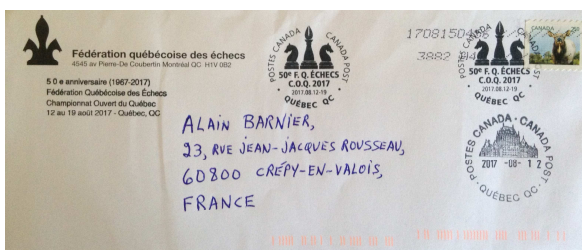 Fédération québécoise des échecs
4545 av Pierre-De Coubertin Montréal QC H1V 0B2
50e anniversaire (1967-2017)
Fédération Québécoise des Échecs
Championnat Ouvert du Québec
12 au 19 août 2017 - Québec, QC
POSTES CANADA CANADA POST
50e F. Q. ÉCHECS
C.O.Q. 2017
2017.08.12-19
QUÉBEC QC
1708150
3882
POSTES CANADA CANADA POST
50e F. Q. ÉCHECS
C.O.Q. 2017
2017.08.12-19
QUÉBEC QC
POSTES CANADA · CANADA POST
2017 -08- 12
QUÉBEC QC
ALAIN BARNIER,
23, RUE JEAN-JACQUES ROUSSEAU,
60800 CRÉPY-EN-VALOIS,
FRANCE